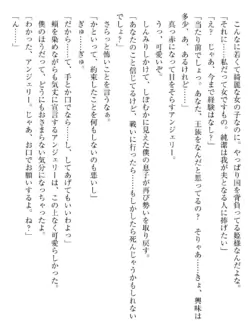 こんなに若くて綺麗な女の子なのに。やっぱり国を背負ってる姫様なんだよな。
「それに……私だって女なのよ? 純潔は我が夫となる人に捧げたい」
「え? じゃあ、今まで経験はなし?」
「当たり前でしょう。王族をなんだと思ってるの? そりゃあ……きょ、興味は
多少、あるけれど……」
真っ赤になって目をそらすアンジェリー。
うわ、可愛いぞ。
「あなたのこと信じてるけど、戦いに行ったら……もしかしたら死んじゃうかもしれない
でしょう?」
さらっと怖いことを言うな。
しんみりしかけて、しぼむかに見えた僕の息子が再び勢いを取り戻す。
「かといって、約束したことを何もしないのも悪いし」
ぎゅ……ぎゅっ。
「だから……て、手とかお口でなら……し、してあげてもいいわよっ」
頬を染めながらも気丈に宣言するアンジェリーが、この上なく可愛らしかった。
僕のほうだって、もうおさまらない気分になっちゃったよ。
「わかった、アンジェリー。じゃあ、お口でお願いするよ、ね?」
「ん……」